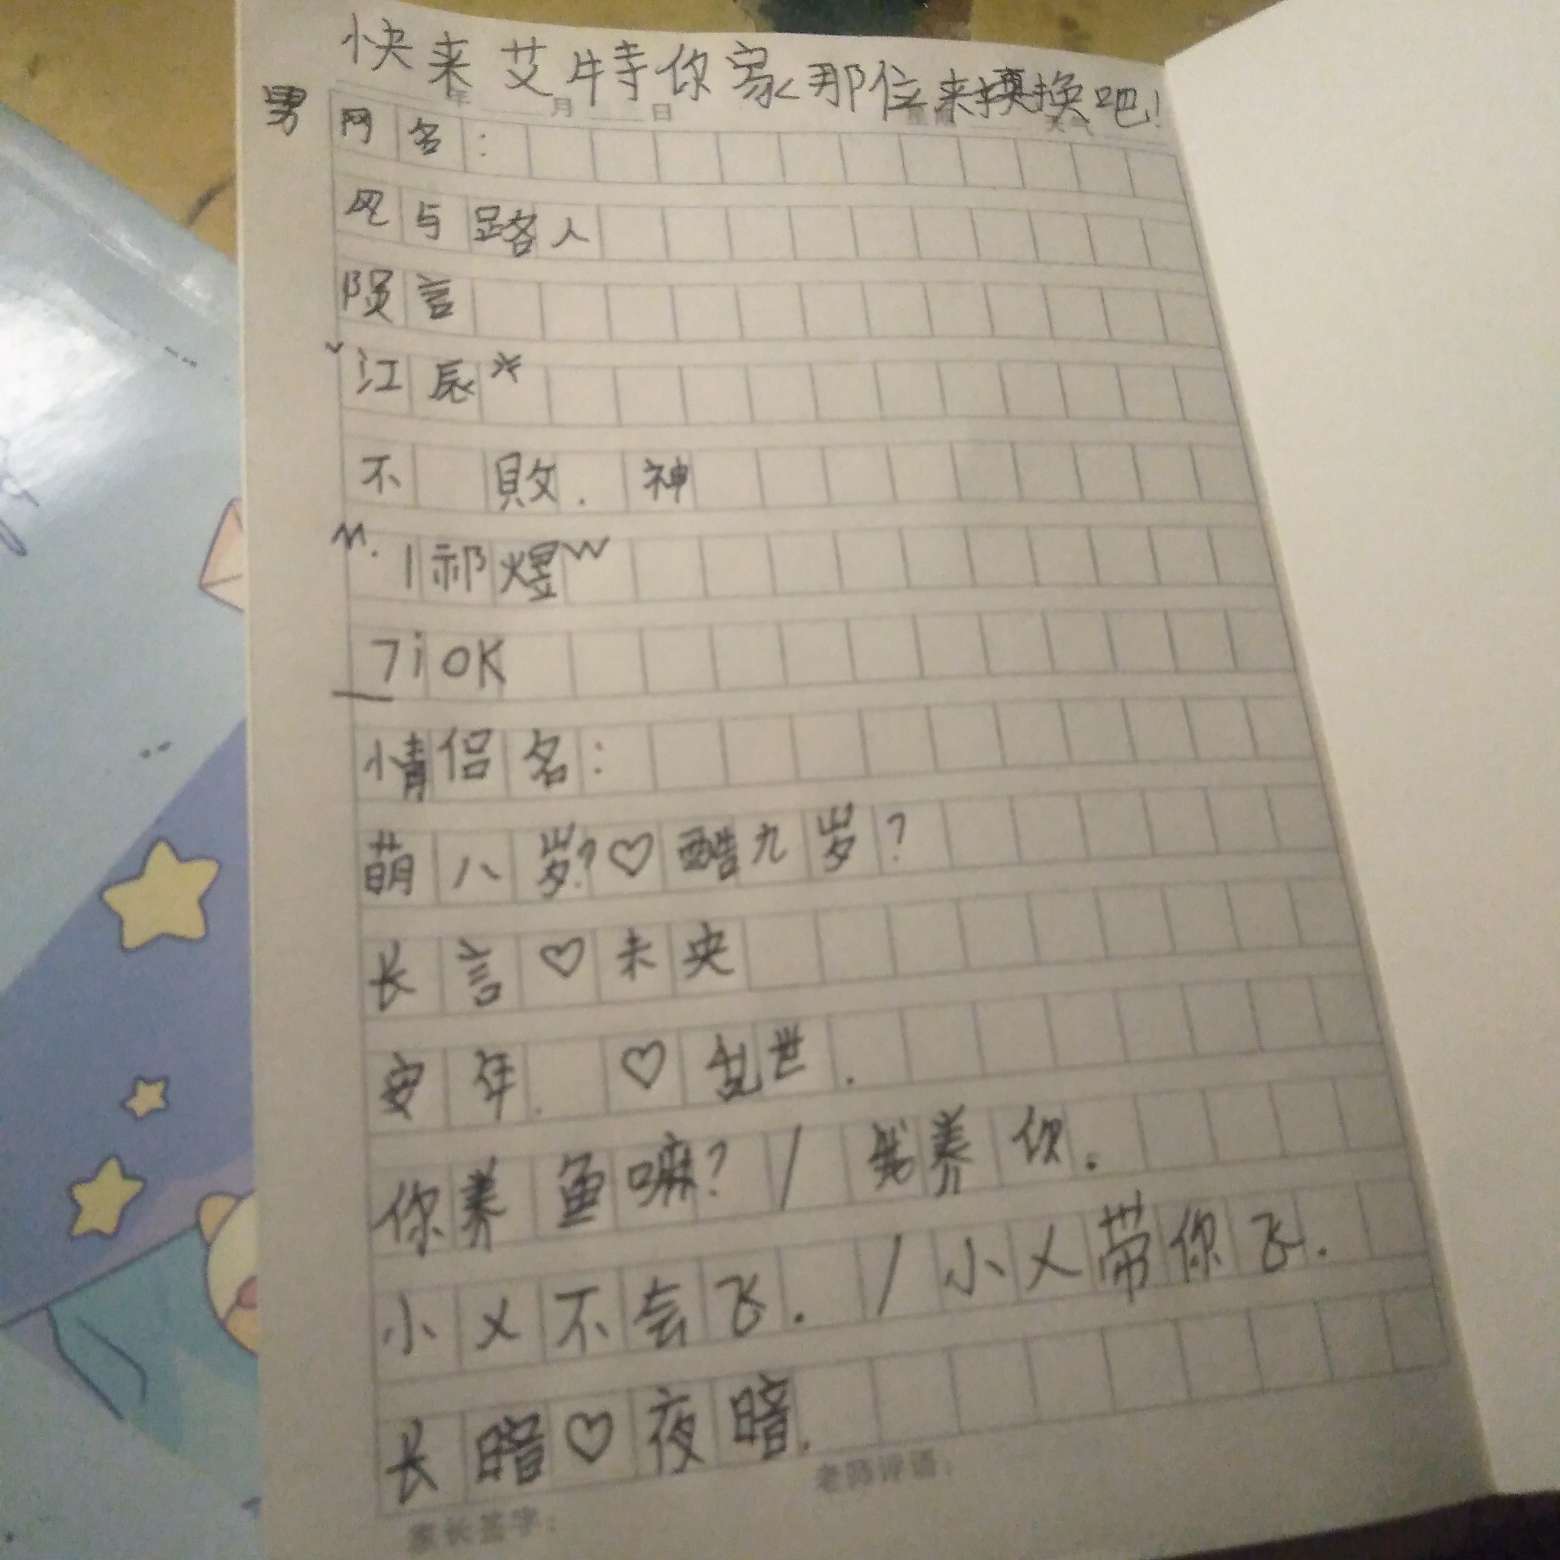 快来艾特你家那位来换换吧!
年 月 日
男网名:
风与路人
陨言
ˇ江辰*
不 敗. 神
M. 1祁煜W
_7iOK
情侣名:
萌八岁?♡酷九岁?
长言♡未央
安年. ♡乱世.
你养鱼嘛? / 我养你.
小乂不会飞. / 小乂带你飞.
长暗♡夜暗.
老师评语:
家长签字: